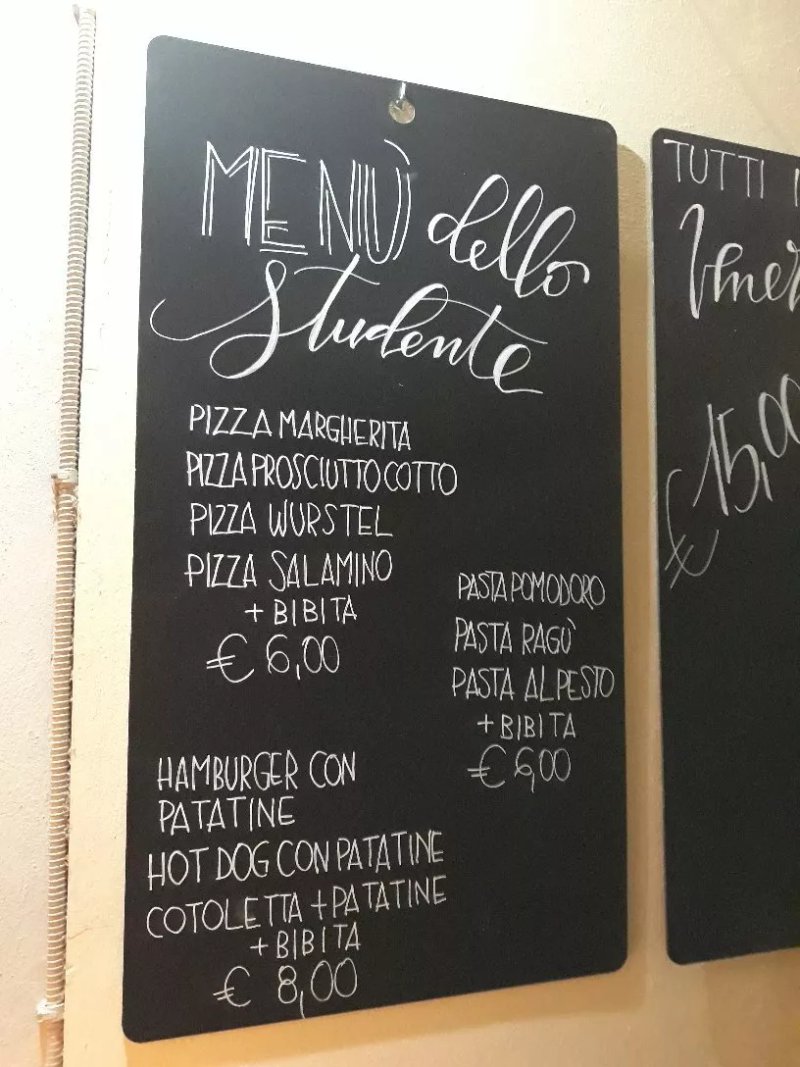 MENÙ dello
Studente
PIZZA MARGHERITA
PIZZA PROSCIUTTO COTTO
PIZZA WURSTEL
PIZZA SALAMINO
+ BIBITA
€ 6,00
PASTA POMODORO
PASTA RAGÙ
PASTA AL PESTO
+ BIBITA
€ 6,00
HAMBURGER CON
PATATINE
HOT DOG CON PATATINE
COTOLETTA + PATATINE
+ BIBITA
€ 8,00
TUTTI I
€ 15,00